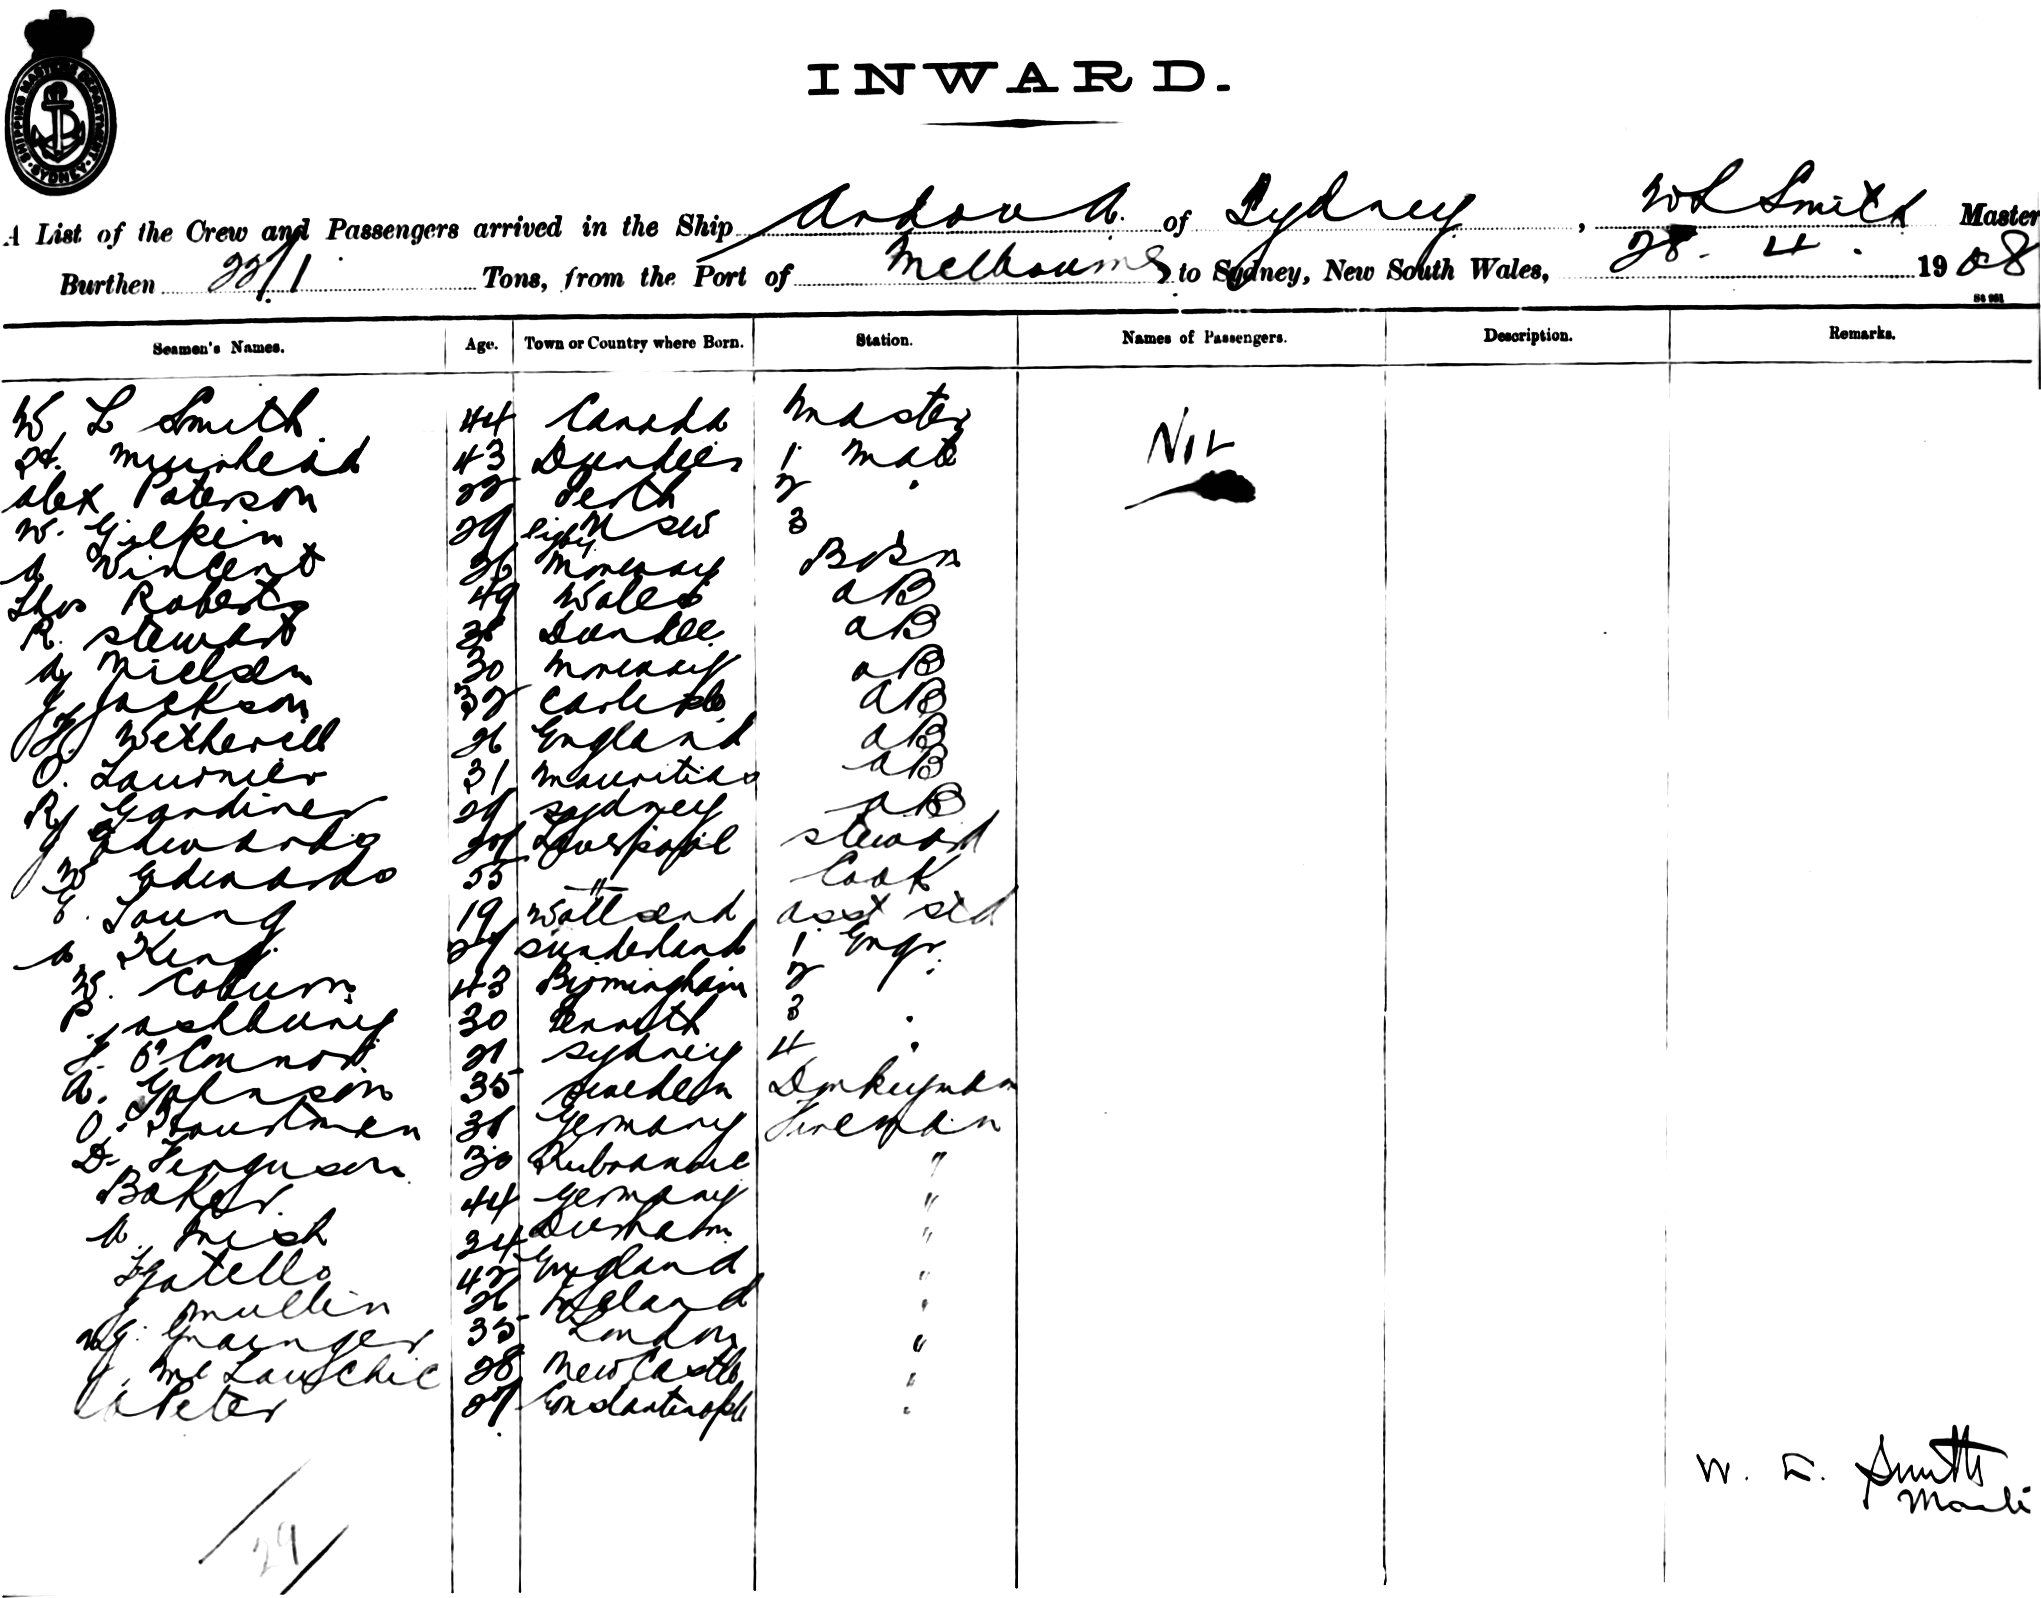 SHIPPING MASTERS DEPARTMENT SYDNEY
INWARD.
A List of the Crew and Passengers arrived in the Ship of Sydney, W L Smith Master
Burthen 2271 Tons, from the Port of Melbourne to Sydney, New South Wales, 28. 4. 1908
Seamen's Names. Age. Town or Country where Born. Station. Names of Passengers. Description. Remarks.
W L Smith 44 Canada Master NIL
Muirhead 43 Dundee 1 Mate
Alex Paterson 22 Perth 2 "
W. Gilpin 29 N S W 3
A Vincent 26 Norway BoSn
Thos Roberts 49 Wales AB
R. Stewart Dundee AB
Nielsen 30 Norway AB
J Jackson 32 Carlisle AB
Wetherill 26 England AB
O. Fournier 31 Mauritius AB
R Gardiner Sydney AB
J Edwards Liverpool Steward
W Edwards 55 " Cook
E. Young 19 Wallsend Asst Std
A King 27 Sunderland 1 Engr
W. Coburn 43 Birmingham 2 "
P. Ashbury 30 Penrith 3 "
J. O'Connor 21 Sydney 4 "
A. Johnson 35 Sweden Donkeyman
O. Germany Fireman
D. Ferguson 30 "
Baker 44 Germany "
A. 34 Durham "
42 England "
J Mullin 26 Ireland "
Grainger 35 London "
J. 28 NewCastle "
Peter 27 Constantinople "
W. L. Smith
Master
29